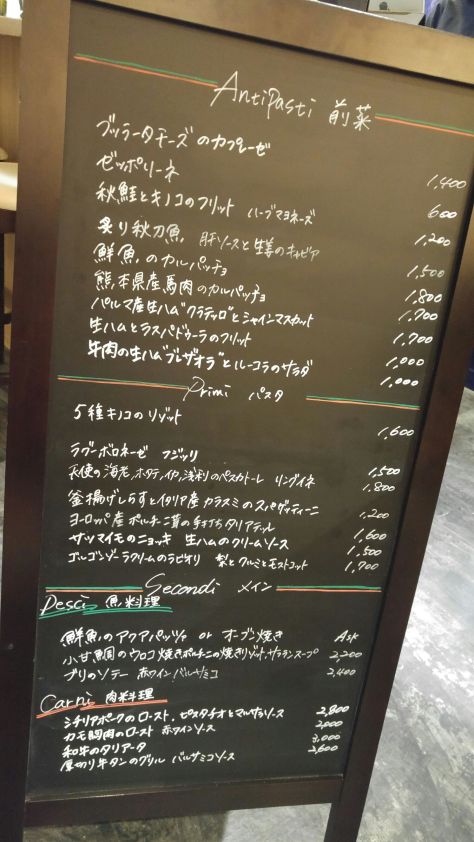 Antipasti 前菜
ブッラータチーズのカプレーゼ 1,400
ゼッポリーネ 600
秋鮭とキノコのフリット ハーブマヨネーズ 1,200
炙り秋刀魚 肝ソースと生姜のキャビア 1,500
鮮魚のカルパッチョ 1,800
熊本県産馬肉のカルパッチョ 1,700
パルマ産生ハム"クラテッロ"とシャインマスカット 1,700
生ハムとラスパドゥーラのフリット 1,000
牛肉の生ハム"ブレザオラ"とルーコラのサラダ 1,000
Primi パスタ
5種キノコのリゾット 1,600
ラグーボロネーゼ フジッリ 1,500
天使の海老,ホタテ,イカ,浅利のペスカトーレ リングイネ 1,800
釜揚げしらすとイタリア産カラスミのスパゲッティーニ 1,200
ヨーロッパ産ポルチーニ茸の手打ちタリアテッレ 1,600
サツマイモのニョッキ 生ハムのクリームソース 1,500
ゴルゴンゾーラクリームのラビオリ 梨とクルミとモストコット 1,700
Secondi メイン
Pesci 魚料理
鮮魚のアクアパッツァ or オーブン焼き Ask
小甘鯛のウロコ焼きポルチーニの焼きリゾット,サフランスープ 2,200
ブリのソテー 赤ワインバルサミコ 2,400
Carni 肉料理
シチリアポークのロースト,ピスタチオとマルサラソース 2,800
カモ胸肉のロースト 赤ワインソース 2,000
和牛のタリアータ 3,000
厚切り牛タンのグリル バルサミコソース 2,600